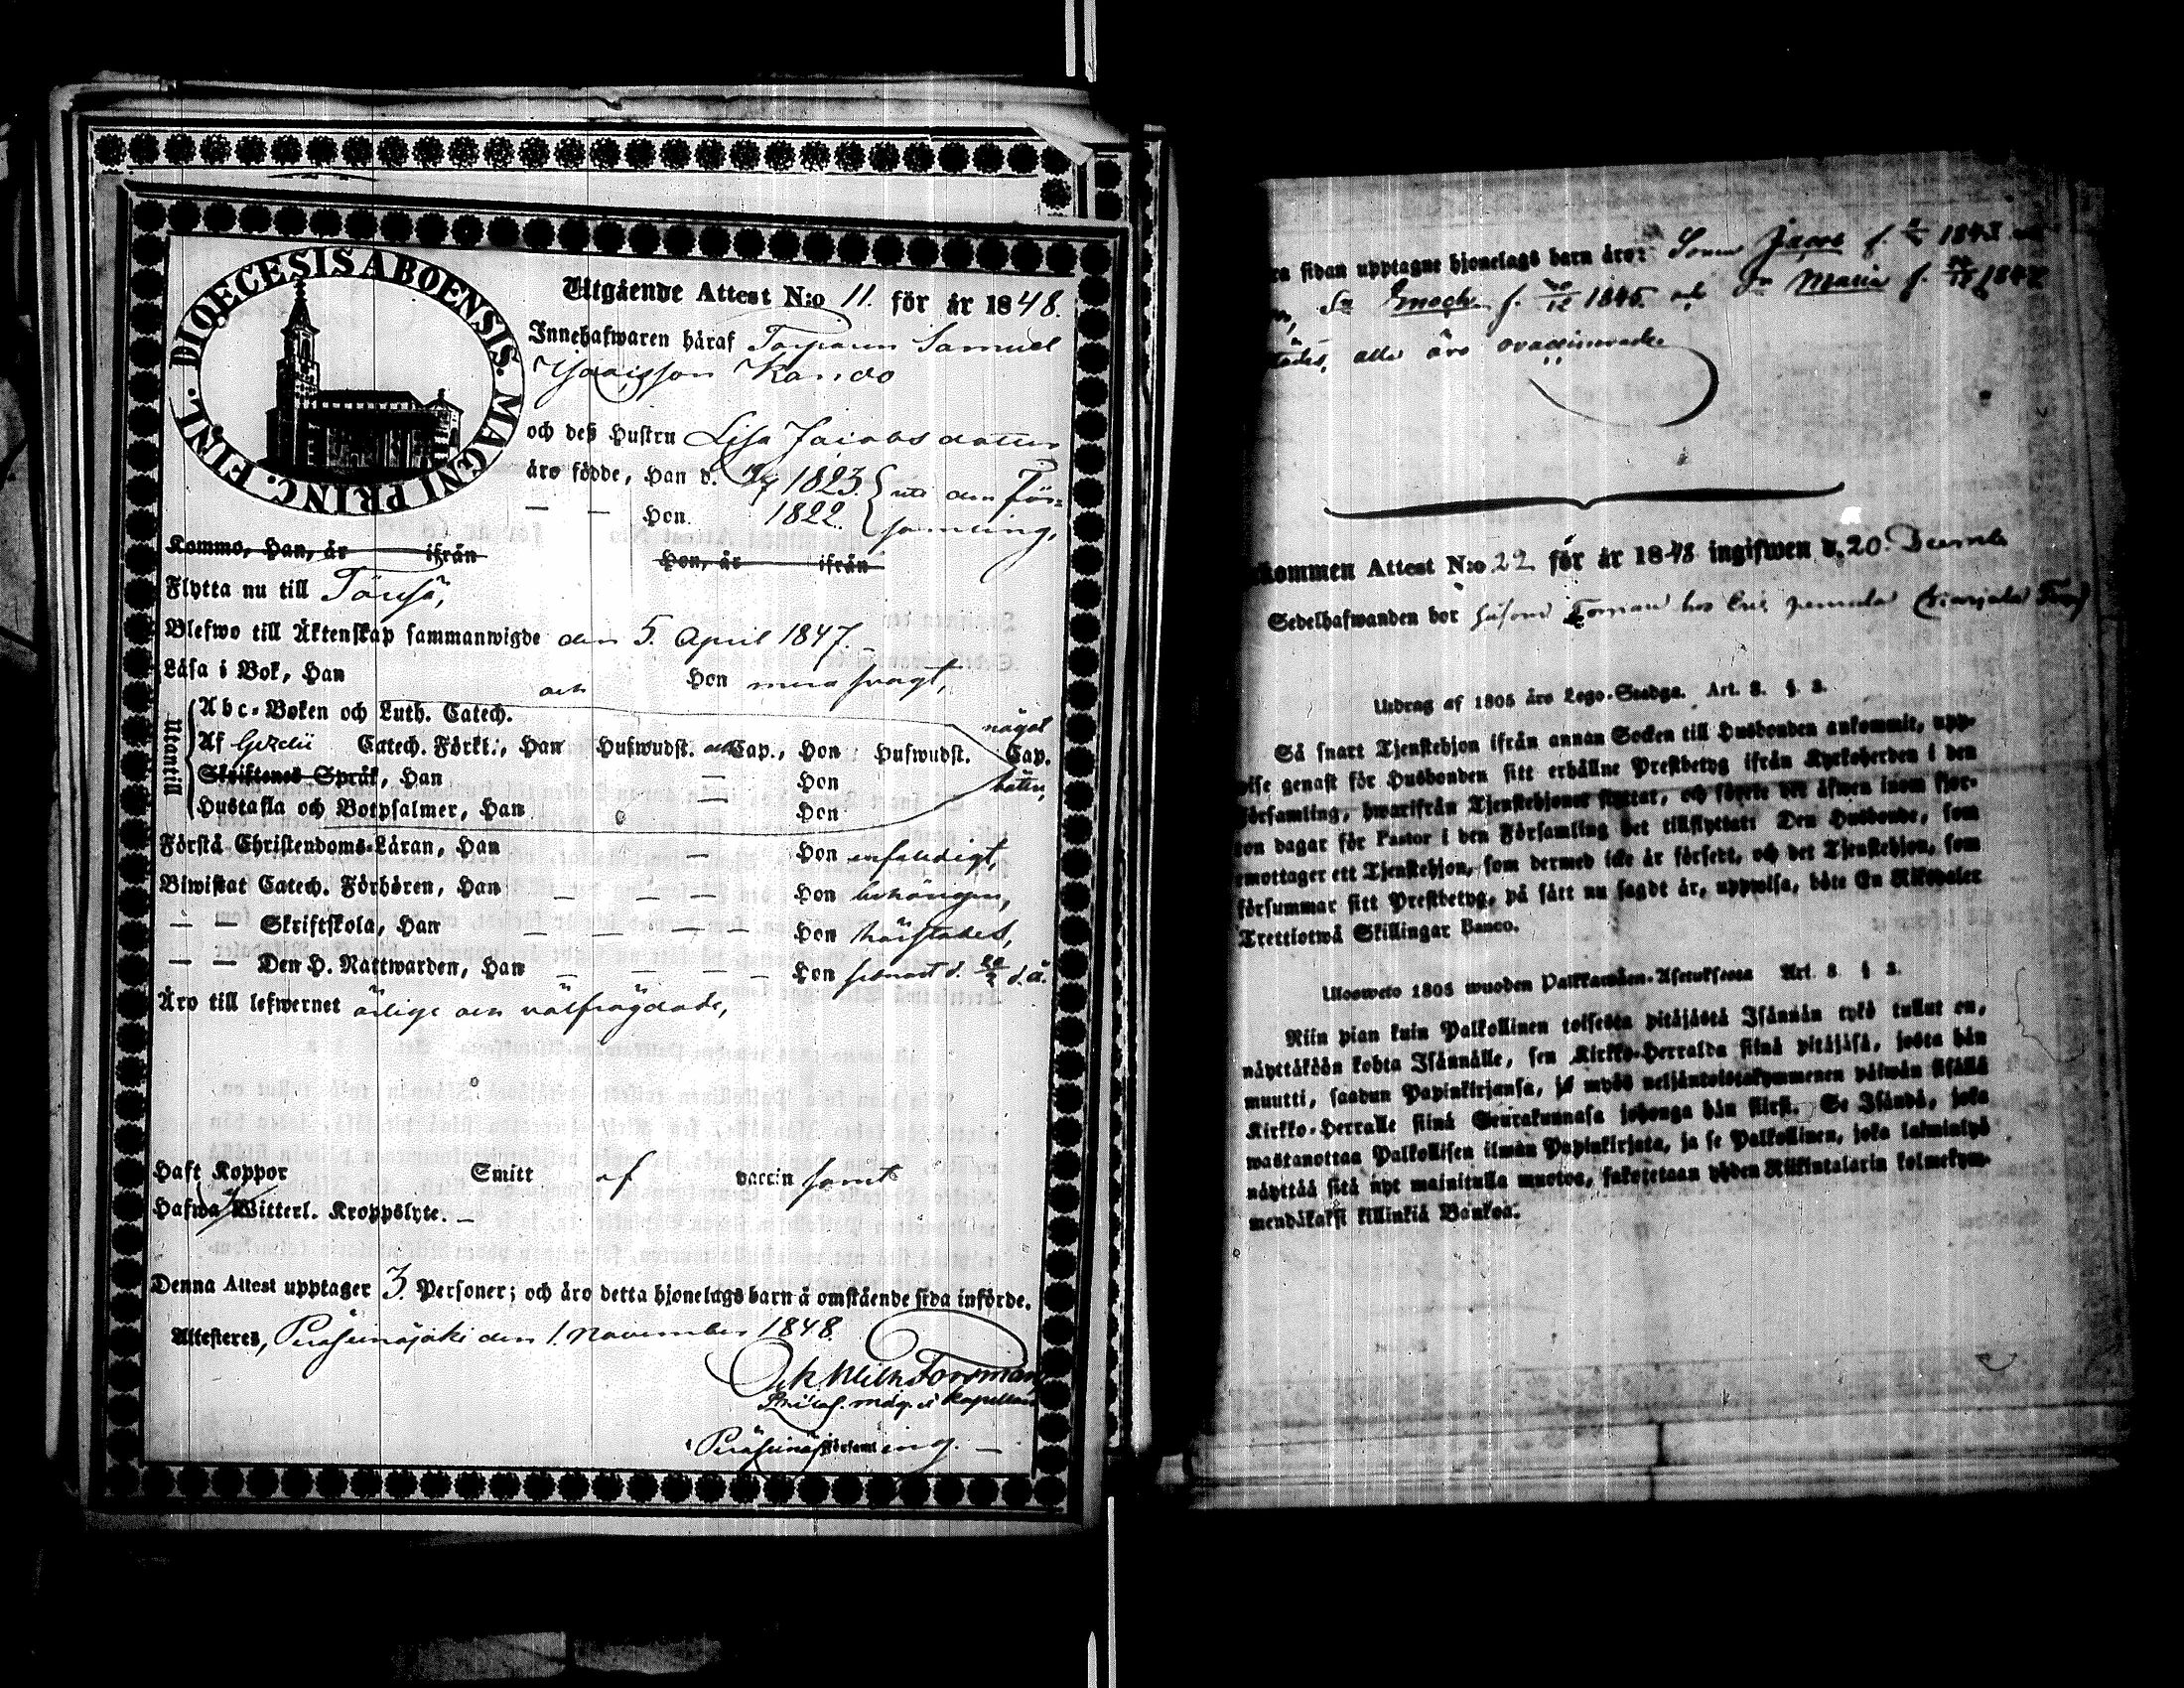 DIOECESIS ABOENSIS. MAGNI PRINC. FINL.
Utgående Attest N:o 11. för år 1848.
Innehafwaren häraf Torparen Samuel
Isaacsson Kando
och deß Hustru Lisa Jacobsdotter
äro födde, Han d. 1823. uti den För=
— — Hon. 1822. samling,
Kommo, Han, år ifrån Hon, år ifrån
Flytta nu till Töusö,
Blefwo till Äktenskap sammanwigde den 5. April 1847.
Läsa i Bok, Han och Hon svagt,
Utanetill
Abc-Boken och Luth. Catech. något
Af Catech. Förkl., Han Hufwudst. Cap., Hon Hufwudst. Cap.
Skriftenes Språk, Han — Hon bättre,
Hustafla och Botpsalmer, Han — Hon
Förstå Christendoms-Läran, Han — Hon enfaldigt,
Biwistat Catech. Förhören, Han — — — Hon behörigen,
— — Skriftskola, Han — — — Hon härstädes,
— — Den H. Nattwarden, Han — — — — Hon senast d. d. å.
Äro till lefwernet ärlige och välfrägdade,
Haft Koppor Smitt af vaccin samt
Hafwa Witterl. Kroppslyte. —
Denna Attest upptager 3. Personer; och äro detta hjonelags barn å omstående sida införde.
Attesteres, Peräseinäjoki den 1. November 1848.
Forsman
Kapellan
Församling. —
sidan upptagne hjonelags barn äro: Sonen Jacob f. 1843
Enoch f. 1845. och Maria f. 1847
alla äro ovaccinerade
kommen Attest N:o 22 för år 1848 ingifwen d. 20. Decemb
Sedelhafwanden bor Torpare hos
Utdrag af 1805 års Lego-Stadga. Art. 8. §. 3.
Så snart Tjenstehjon ifrån annan Socken till Husbonden ankommit, upp-
wise genast för Husbonden sitt erhållne Prestbetyg ifrån Kyrkoherden i den
församling, hwarifrån Tjenstehjonet flyttat, och förete det äfwen inom fjor-
ton dagar för Pastor i den Församling det tillflyttat: Den Husbonde, som
emottager ett Tjenstehjon, som dermed icke är försedt, och det Tjenstehjon, som
försummar sitt Prestbetyg, på sätt nu sagdt är, uppwisa, böte En Riksdaler
Trettiotwå Skillingar Banco.
Uloswето 1805 wuoden Palkkawäen-Asetuksesta Art. 8 § 3.
Niin pian kuin Palkollinen toisesta pitäjästä Isännän tykö tullut on,
näyttäköön kohta Isännälle, sen Kirkko-Herralda siinä pitäjäsä, josta hän
muutti, saadun Papinkirjansa, ja myös neljäntoistakymmenen päiwän sisällä
Kirkko-Herralle siinä Seurakunnasa johonga hän siirsi. Se Isändä, joka
wastanottaa Palkollisen ilman Papinkirjata, ja se Palkollinen, joka laiminlyö
näyttää sitä nyt mainitulla muotoa, sakotetaan yhden Riikintalarin kolmekym-
mendäkaksi killinkiä Bankoa.